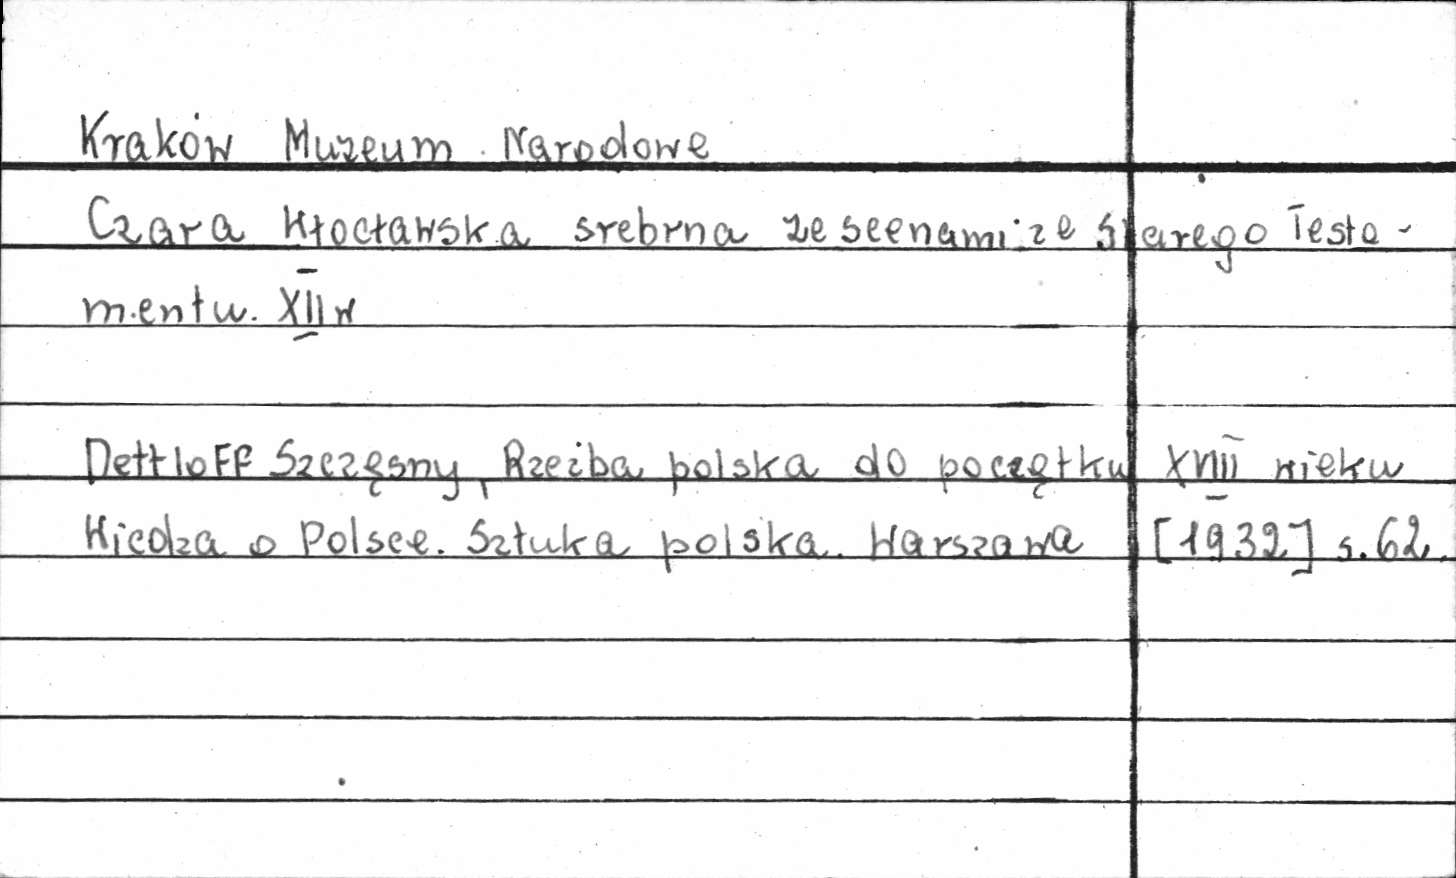 Kraków Muzeum Narodowe
Czara Włocławska srebrna ze scenami ze Starego Testa-
mentu. XII w
Dettloff Szczęsny, Rzeźba polska do początku XVIII wieku
Wiedza o Polsce. Sztuka polska. Warszawa [1932] s. 62.